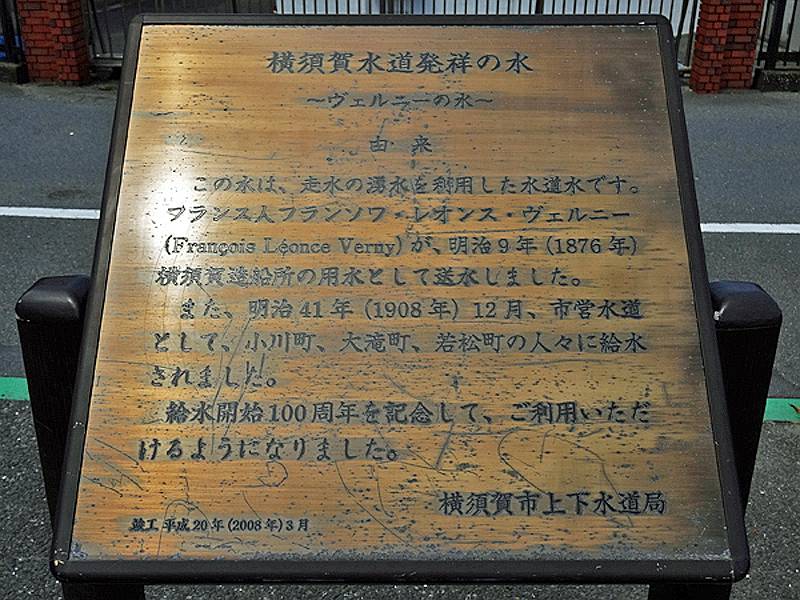 横須賀水道発祥の水
～ヴェルニーの水～
由 来
この水は、走水の湧水を利用した水道水です。
フランス人フランソワ・レオンス・ヴェルニー
(François Léonce Verny)が、明治9年(1876年)
横須賀造船所の用水として送水しました。
また、明治41年(1908年)12月、市営水道
として、小川町、大滝町、若松町の人々に給水
されました。
給水開始100周年を記念して、ご利用いただ
けるようになりました。
横須賀市上下水道局
竣工 平成20年(2008年)3月